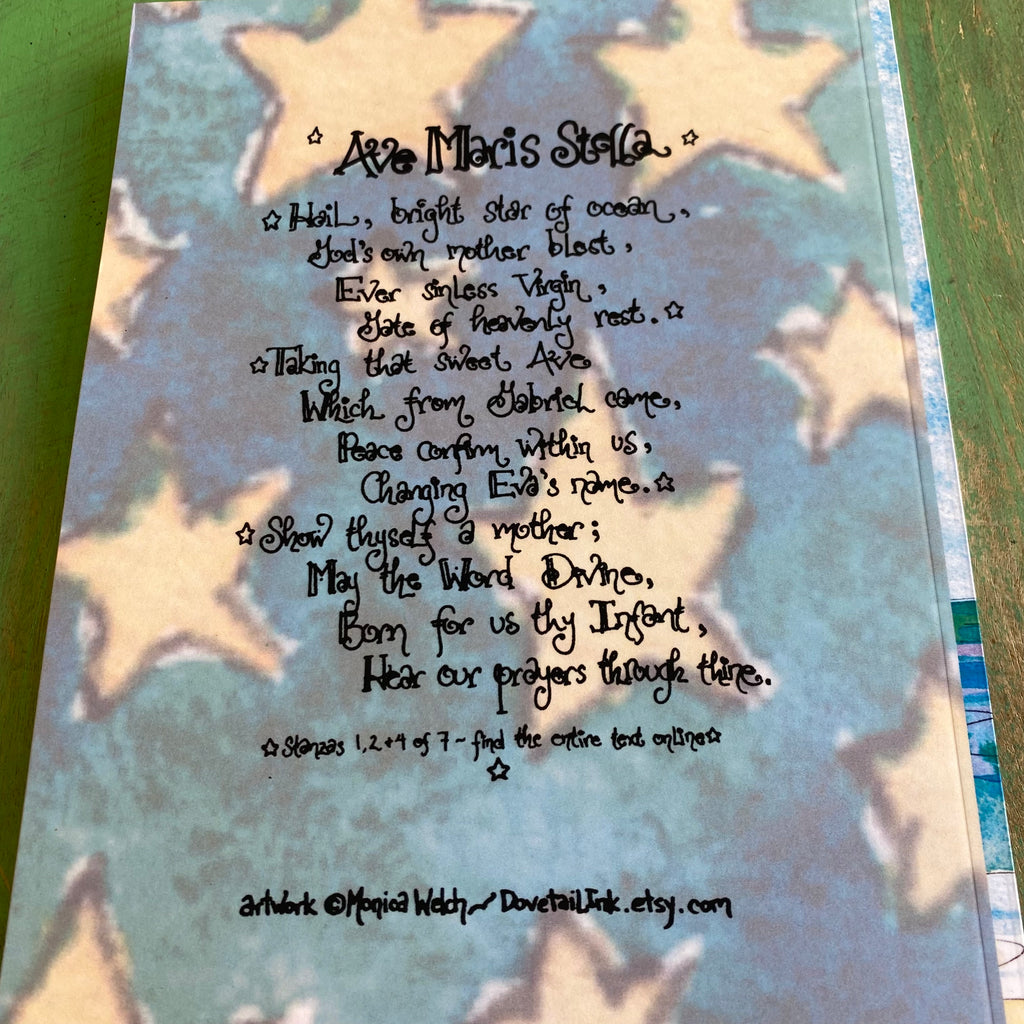 ☆ Ave Maris Stella ☆
☆ Hail, bright star of ocean,
God's own mother blest,
Ever sinless Virgin,
Gate of heavenly rest. ☆
☆ Taking that sweet Ave
Which from Gabriel came,
Peace confirm within us,
Changing Eva's name. ☆
☆ Show thyself a mother;
May the Word Divine,
Born for us thy Infant,
Hear our prayers through thine.
☆ Stanzas 1, 2 + 4 of 7 ~ find the entire text online ☆
☆
artwork © Monica Welch ~ DovetailInk.etsy.com